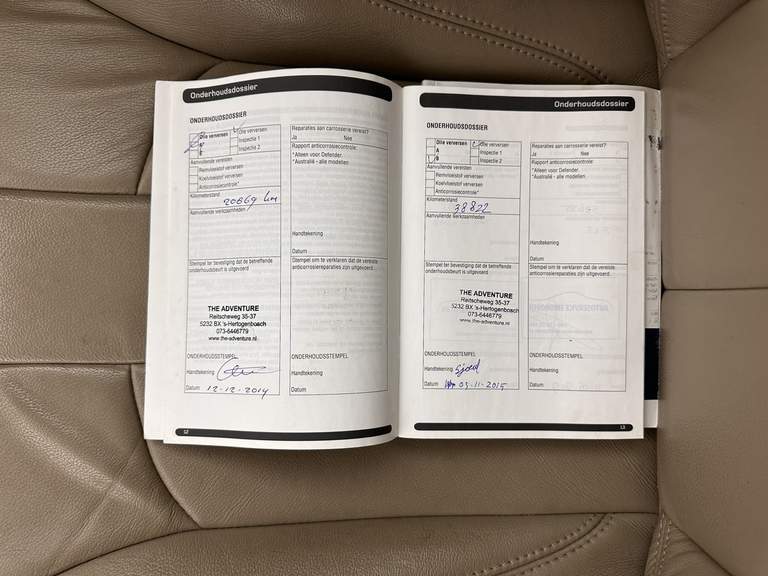 Onderhoudsdossier
ONDERHOUDSDOSSIER
Olie verversen
A
B
Olie verversen
Inspectie 1
Inspectie 2
Aanvullende vereisten
Remvloeistof verversen
Koelvloeistof verversen
Anticorrosiecontrole*
Kilometerstand
20869 km
Aanvullende werkzaamheden
Stempel ter bevestiging dat de betreffende
onderhoudsbeurt is uitgevoerd
THE ADVENTURE
Reitscheweg 35-37
5232 BX 's-Hertogenbosch
073-6446779
www.the-adventure.nl
ONDERHOUDSSTEMPEL
Handtekening
Datum 12-12-2014
Reparaties aan carrosserie vereist?
Ja Nee
Rapport anticorrosiecontrole:
*Alleen voor Defender.
*Australië - alle modellen.
Handtekening
Datum
Stempel om te verklaren dat de vereiste
anticorrosiereparaties zijn uitgevoerd.
ONDERHOUDSSTEMPEL
Handtekening
Datum
12
Onderhoudsdossier
ONDERHOUDSDOSSIER
Olie verversen
A
B
Olie verversen
Inspectie 1
Inspectie 2
Aanvullende vereisten
Remvloeistof verversen
Koelvloeistof verversen
Anticorrosiecontrole*
Kilometerstand
38822
Aanvullende werkzaamheden
Stempel ter bevestiging dat de betreffende
onderhoudsbeurt is uitgevoerd
THE ADVENTURE
Reitscheweg 35-37
5232 BX 's-Hertogenbosch
073-6446779
www.the-adventure.nl
ONDERHOUDSSTEMPEL
Handtekening Sjoerd
Datum 03-11-2015
Reparaties aan carrosserie vereist?
Ja Nee
Rapport anticorrosiecontrole:
*Alleen voor Defender.
*Australië - alle modellen.
Handtekening
Datum
Stempel om te verklaren dat de vereiste
anticorrosiereparaties zijn uitgevoerd.
ONDERHOUDSSTEMPEL
Handtekening
Datum
13